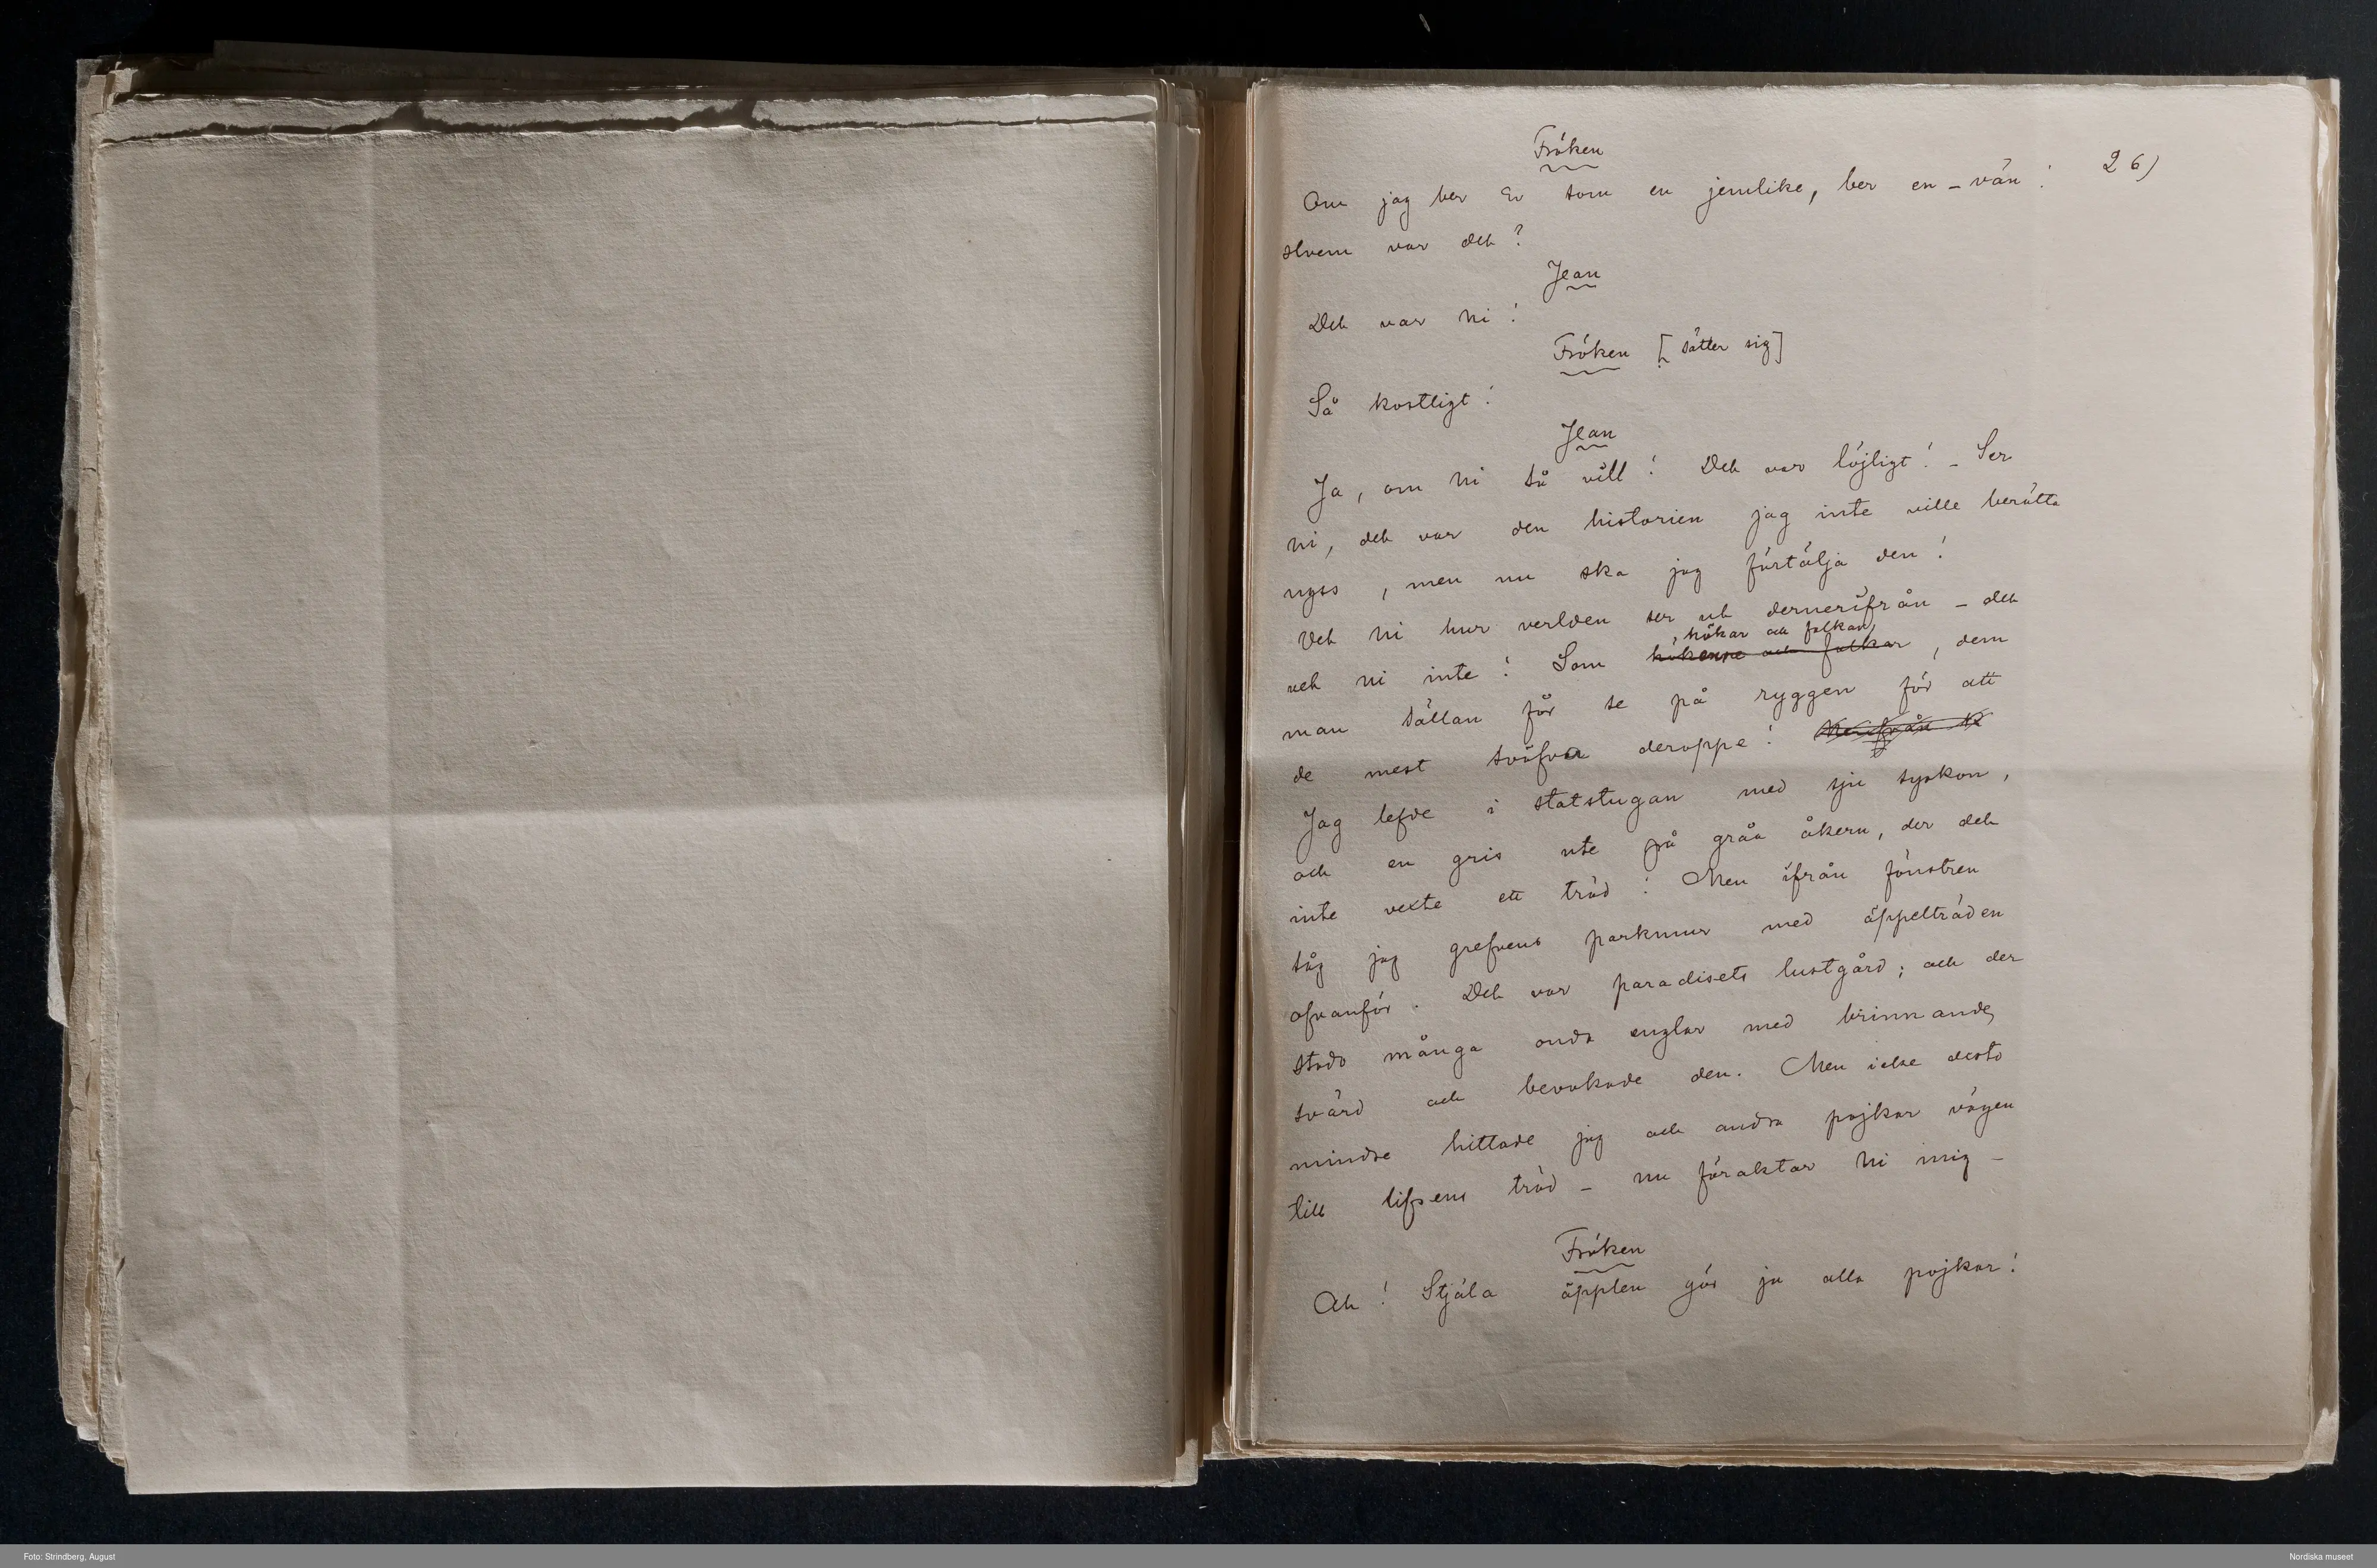 Fröken
26)
Om jag ber Er som en jemlike, ber en – vän!
Hvem var det?
Jean
Det var ni!
Fröken [sätter sig]
Så kostligt!
Jean
Ja, om ni så vill! Det var löjligt! – Ser
ni, det var den historien jag inte ville berätta
nyss, men nu ska jag förtälja den!
Vet ni hur verlden ser ut dernerifrån – det
, hökar och falkar,
vet ni inte! Som och falkar, dem
man sällan får se på ryggen för att
de mest sväfva deroppe!
Jag lefde i statstugan med sju syskon,
och en gris ute på gråa åkern, der det
inte vexte ett träd! Men ifrån fönstren
såg jag grefvens parkmur med äppelträden
ofvanför. Det var paradisets lustgård; och der
stodo många onda englar med brinnande
svärd och bevakade den. Men icke desto
mindre hittade jag och andra pojkar vägen
till lifsens träd – nu föraktar ni mig –
Fröken
Ah! Stjäla äpplen gör ju alla pojkar!
Foto: Strindberg, August
Nordiska museet